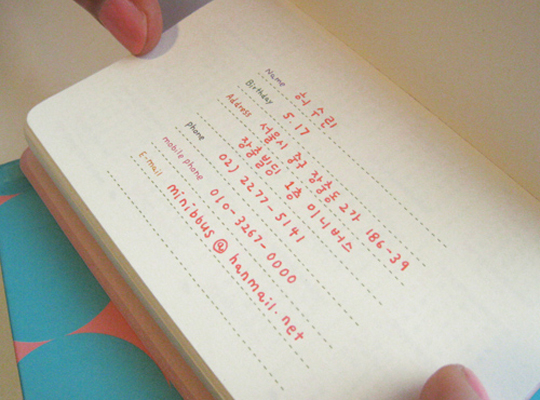 Name 허 수 린
Birthday 5 17
Address 서울시 중구 장충동 2가 186-39
장충빌딩 1층 미니버스
phone 02) 2277-5141
mobile phone 010-3267-0000
E-mail minibbus@hanmail.net